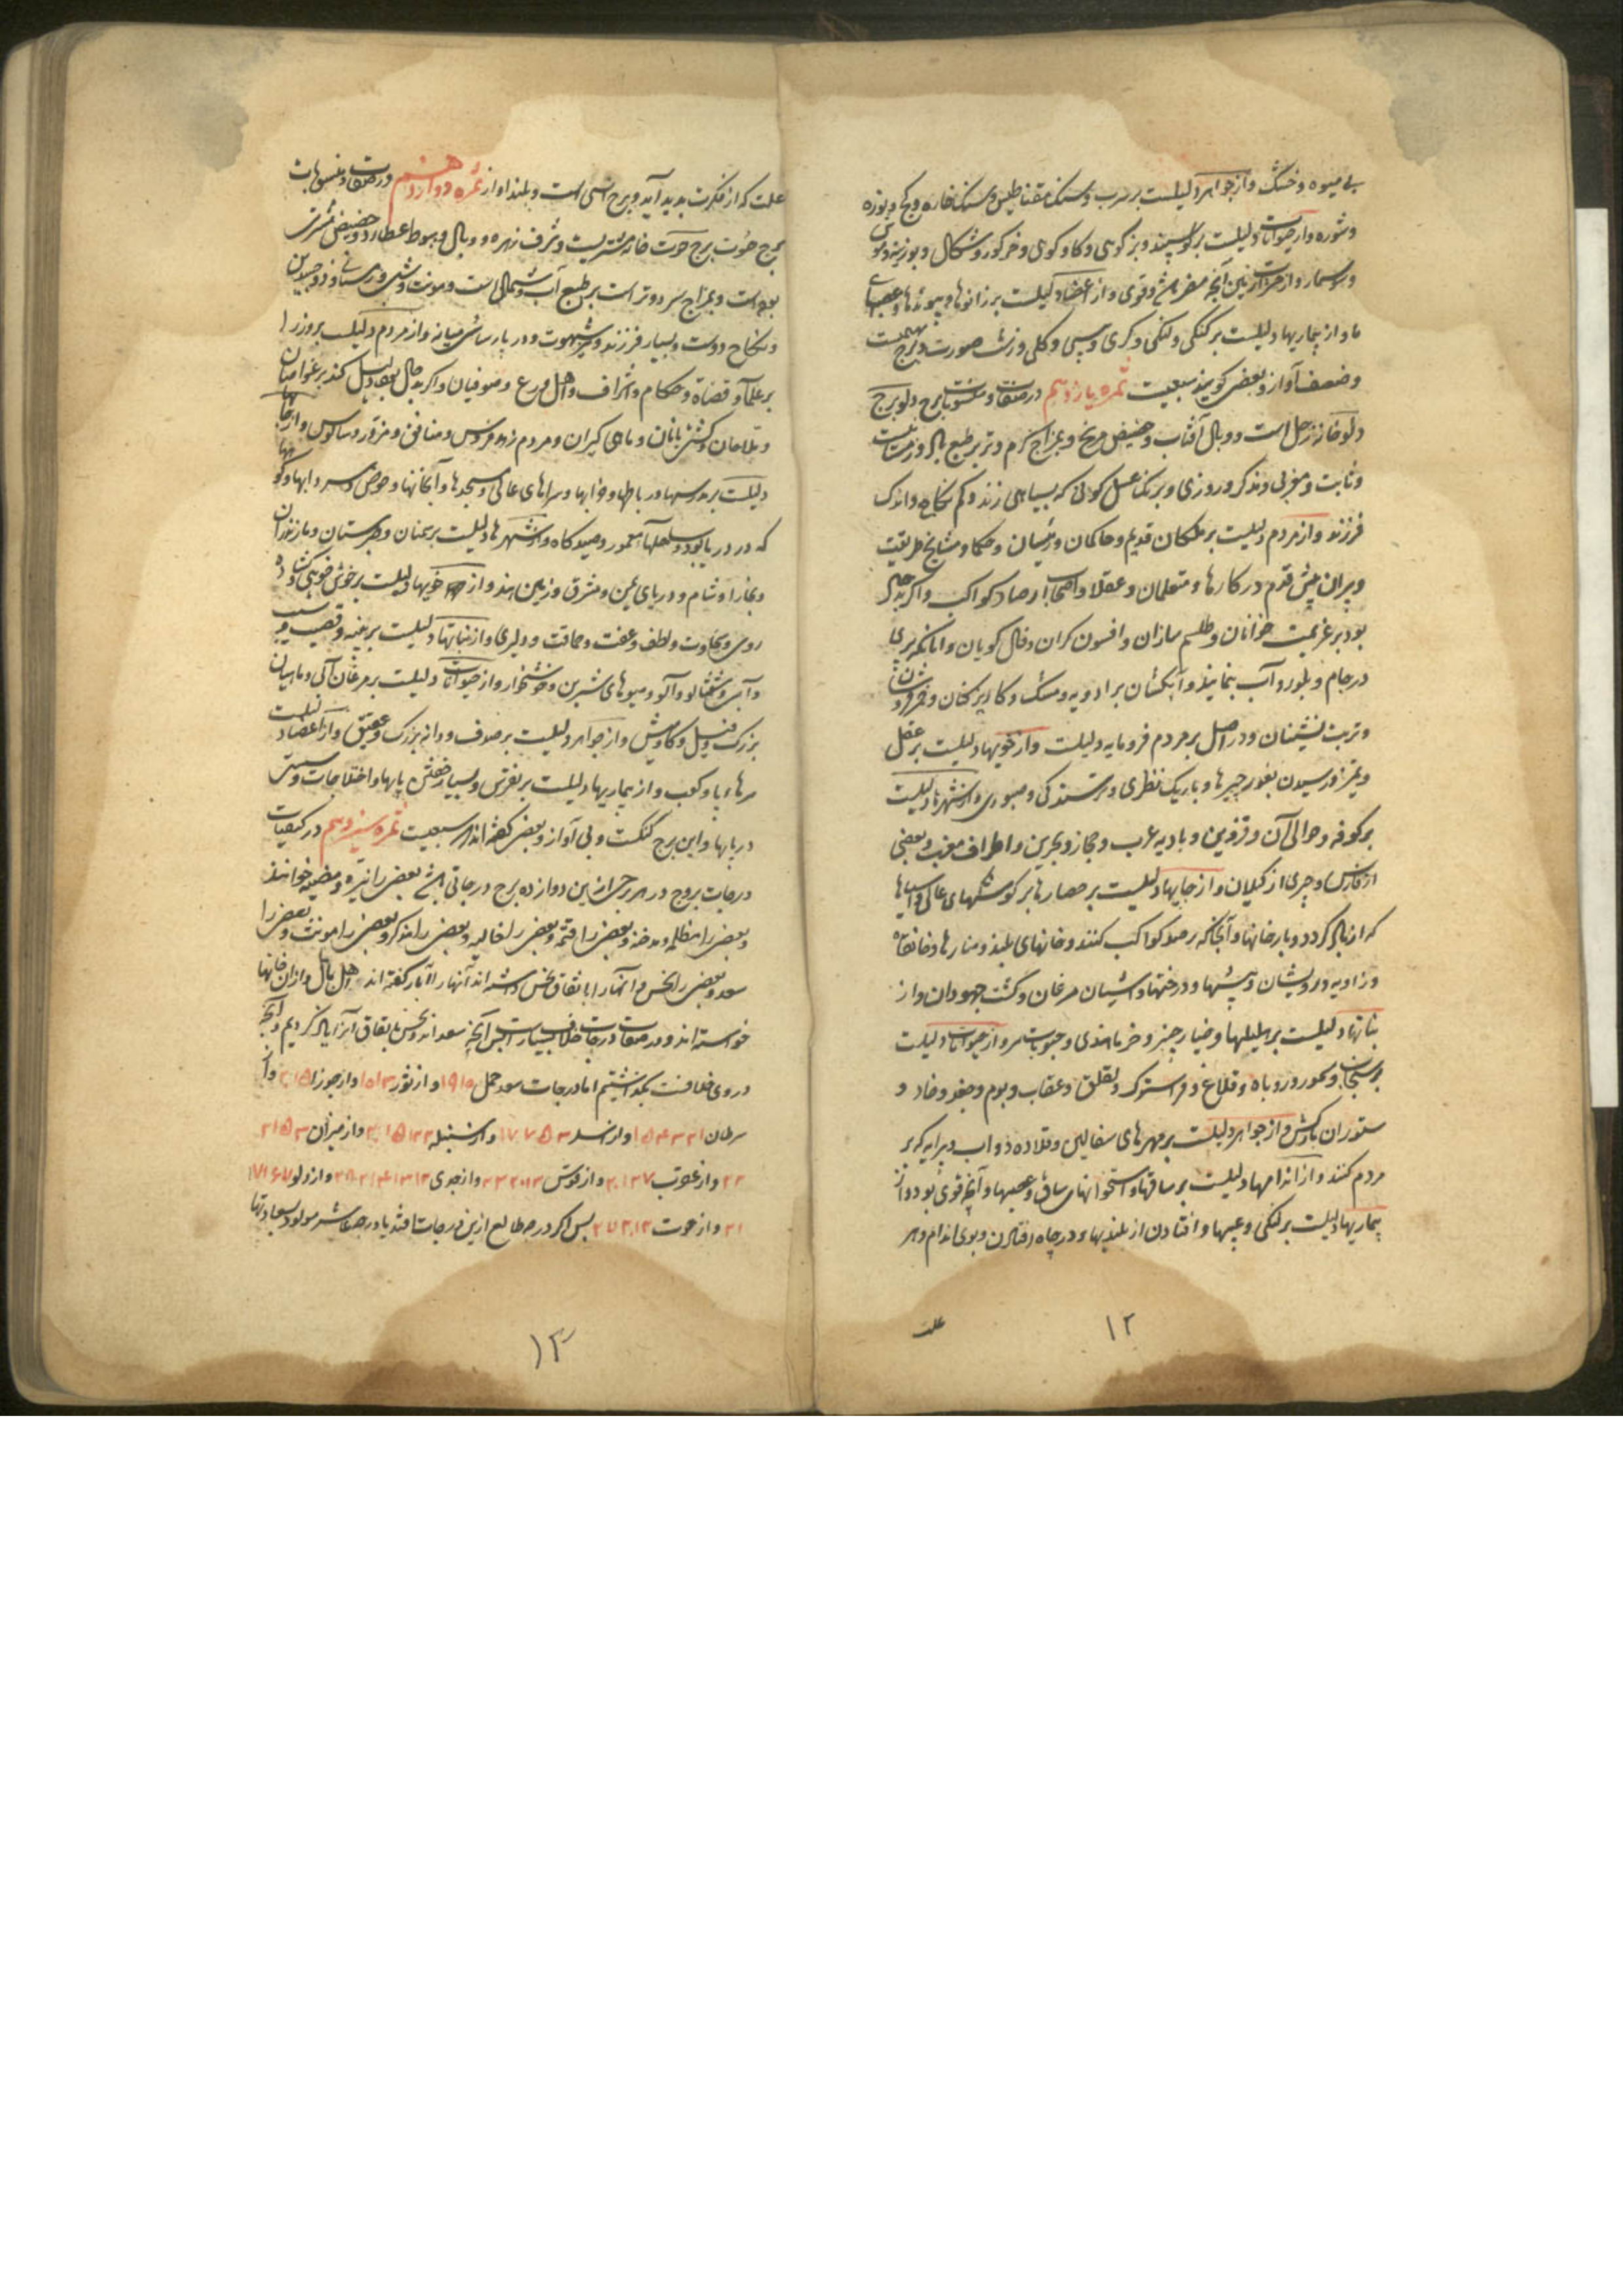 بی میوه و خشک و از جواهر دلیلست بر سرب و سنک مقناطیس و سنک خاره و کج و نوره
و شوره و از حیوانات دلیلست بر کوسپند و بز کوهی و کاو کوهی و خر کور و شکال و بوزینه و موش
و سوسمار و از حشرات زمین آنچه مضر باشد و قوی و از اعضا دلیلست بر زانوها و پیوندها و عصبهای
ما و از بیماریها دلیلست بر کنکی و لنکی و کری و پیسی و کلی و زشت صورت و برج بهیمیست
و ضعف آواز و بعضی کویند سبعیت ثمره یازدهم در صفات و منسوبات برج دلو برج
دلو خانه زحل است و وبال آفتاب و حضیض مریخ و بمزاج کرم و تر بر طبع باد و زمستانیست
و ثابت و مغربی و مذکر و روزی و برنک عسل کونی که بسیاهی زند و کم نکاح و اندک
فرزند و از مردم دلیلست بر ملکان قدیم و حاکمان و رئیسان و حکما و مشایخ طریقت
و پیران پیش قدم در کارها و متعلمان و عقلا و اصحاب ارصاد کواکب و اکر بد حال
بود بر عزیمت خوانان و طلسم سازان و افسون کران و فال کویان و آنانکه پری
در جام و بلور و آب بنمایند و آبکشان برادویه و مشک و کاریز کنان و خمر فروشان
و تربت نشینان و در اصل بر مردم فرومایه دلیلت و از خویها دلیلست بر عقل
و تمیز و رسیدن بغور چیزها و باریک نظری و ترسندکی و صبوری و از شهرها دلیلست
بر کوفه و حوالی آن و قزوین و بادیه عرب و حجاز و بحرین و اطراف مغرب و بعضی
از فارس و چیزی از کیلان و از جایها دلیلست بر حصارها بر کوشکهای عالی و آسیاها
که از باد کردد و بارخانها و آنجا که رصد کواکب کنند و خانهای بلند و منارها و خانقاه
و زاویه درویشان و بیشها و درختها و آشیان مرغان و کنشت جهودان و از
نباتها دلیلست بر هلیلها و خیار چنبر و خرما هندی و حبوبات سرد و از حیوانات دلیلت
بر سنجاب و سمور و روباه و کلاغ و فراسترک و لقلق و عقاب و بوم و جغد و خاد و
ستوران بارکش و از جواهر دلیلت بر مهرهای سفالین و قلاده دواب و پیرایه که بر
مردم کنند و از اندامها دلیلست بر ساقها و استخوانهای ساق و عصبها و آنچه قوی بود و از
بیماریها دلیلت بر لنکی و عیبها و افتادن از بلندیها و در چاه افتادن و بوی اندام و هر
علت
۱۲
علت که از فکرت پدید آید و برج انسی است و بلند آواز ثمره دوازدهم در صفات و منسوبات
برج حوت برج حوت خانه مشتریست و شرف زهره و وبال و هبوط عطارد و حضیض
بوده است و بمزاج سرد و تر است بر طبع آب و شمالی است و مونث و شبی و زمستانی و ذو جسدین
و نکاح دوست و بسیار فرزند و پر شهوت و در پارسائی میانه و از مردم دلیلست بر وزرا
بر علما و قضاة و حکام و اشراف و اهل ورع و صوفیان و اکر بد حال بود دلیل کند بر غواصان
و ملاحان و کشتی بانان و ماهی کیران و مردم زهد فروش و منافق و مزور و سالوس و از جایها
دلیلست بر مدرسها و رباطها و خوابها و سراهای عالی و مسجدها و آبخانها و حوض و سردابها
که در دریا بود و ساحلها معمور و صید کاه و از شهرها دلیلست بر سمنان و طبرستان و مازندران
و بخارا و شام و دریای یمن و مشرق و زمین هند و از خویها دلیلست بر خوش خوی و کشاده
روی و سخاوت و لطف و عفت و حماقت و دلیری و از نباتها دلیلیست بر پنبه و قصب و سیب
و آبی و شفتالو و آلو و میوهای شیرین و خوشخوار و از حیوانات دلیلست بر مرغان آبی و ماهیان
بزرک و فیل و کاومیش و از جواهر دلیلست بر صدف و دانه بزرک و عقیق و از اعضا دلیلست
بر هر دو پا و کعب و از بیماریها دلیلست بر نقرس و بسیار خفتن پایها و اختلاجات و سستی
در پایها و این برج کنکست و بی آواز و بعضی کفته اند سبعیت ثمره سیزدهم در کیفیات
درجات بروج در هر برجی از این دوازده برج درجاتی باشد بعضی را نیره و مضیئه خوانند
و بعضی را مظلمه و مدخنه و بعضی را قتمه و بعضی را خالیه و بعضی را مذکر و بعضی را مونث و بعضی را
سعد و بعضی را نحس و آنها را باتفاق نحس داشته اند آنها را آبار کفته اند اهل بابل و از آن خانها
خواسته اند و در صفات درجات خلاف بسیارست پس آنچه سعد اند و نحس باتفاق آنرا یاد کردیم و آنچه
در وی خلافست بگذاشتیم اما درجات سعد حمل ۱۹ ۱۵ و از ثور ۳ ۱۵ و از جوزا
سرطان و از اسد و از سنبله و از میزان
و از عقرب و از قوس و از جدی و از دلو
و از حوت پس اکر درجه طالع ازین درجات افتد یا درجه عاشر مولود سعادتها
۱۳